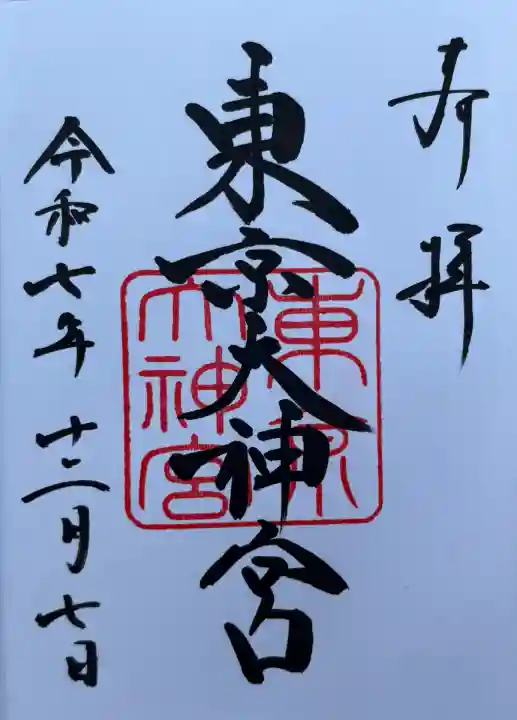 奉拝
東京大神宮
東京大神宮
令和七年 十二月七日